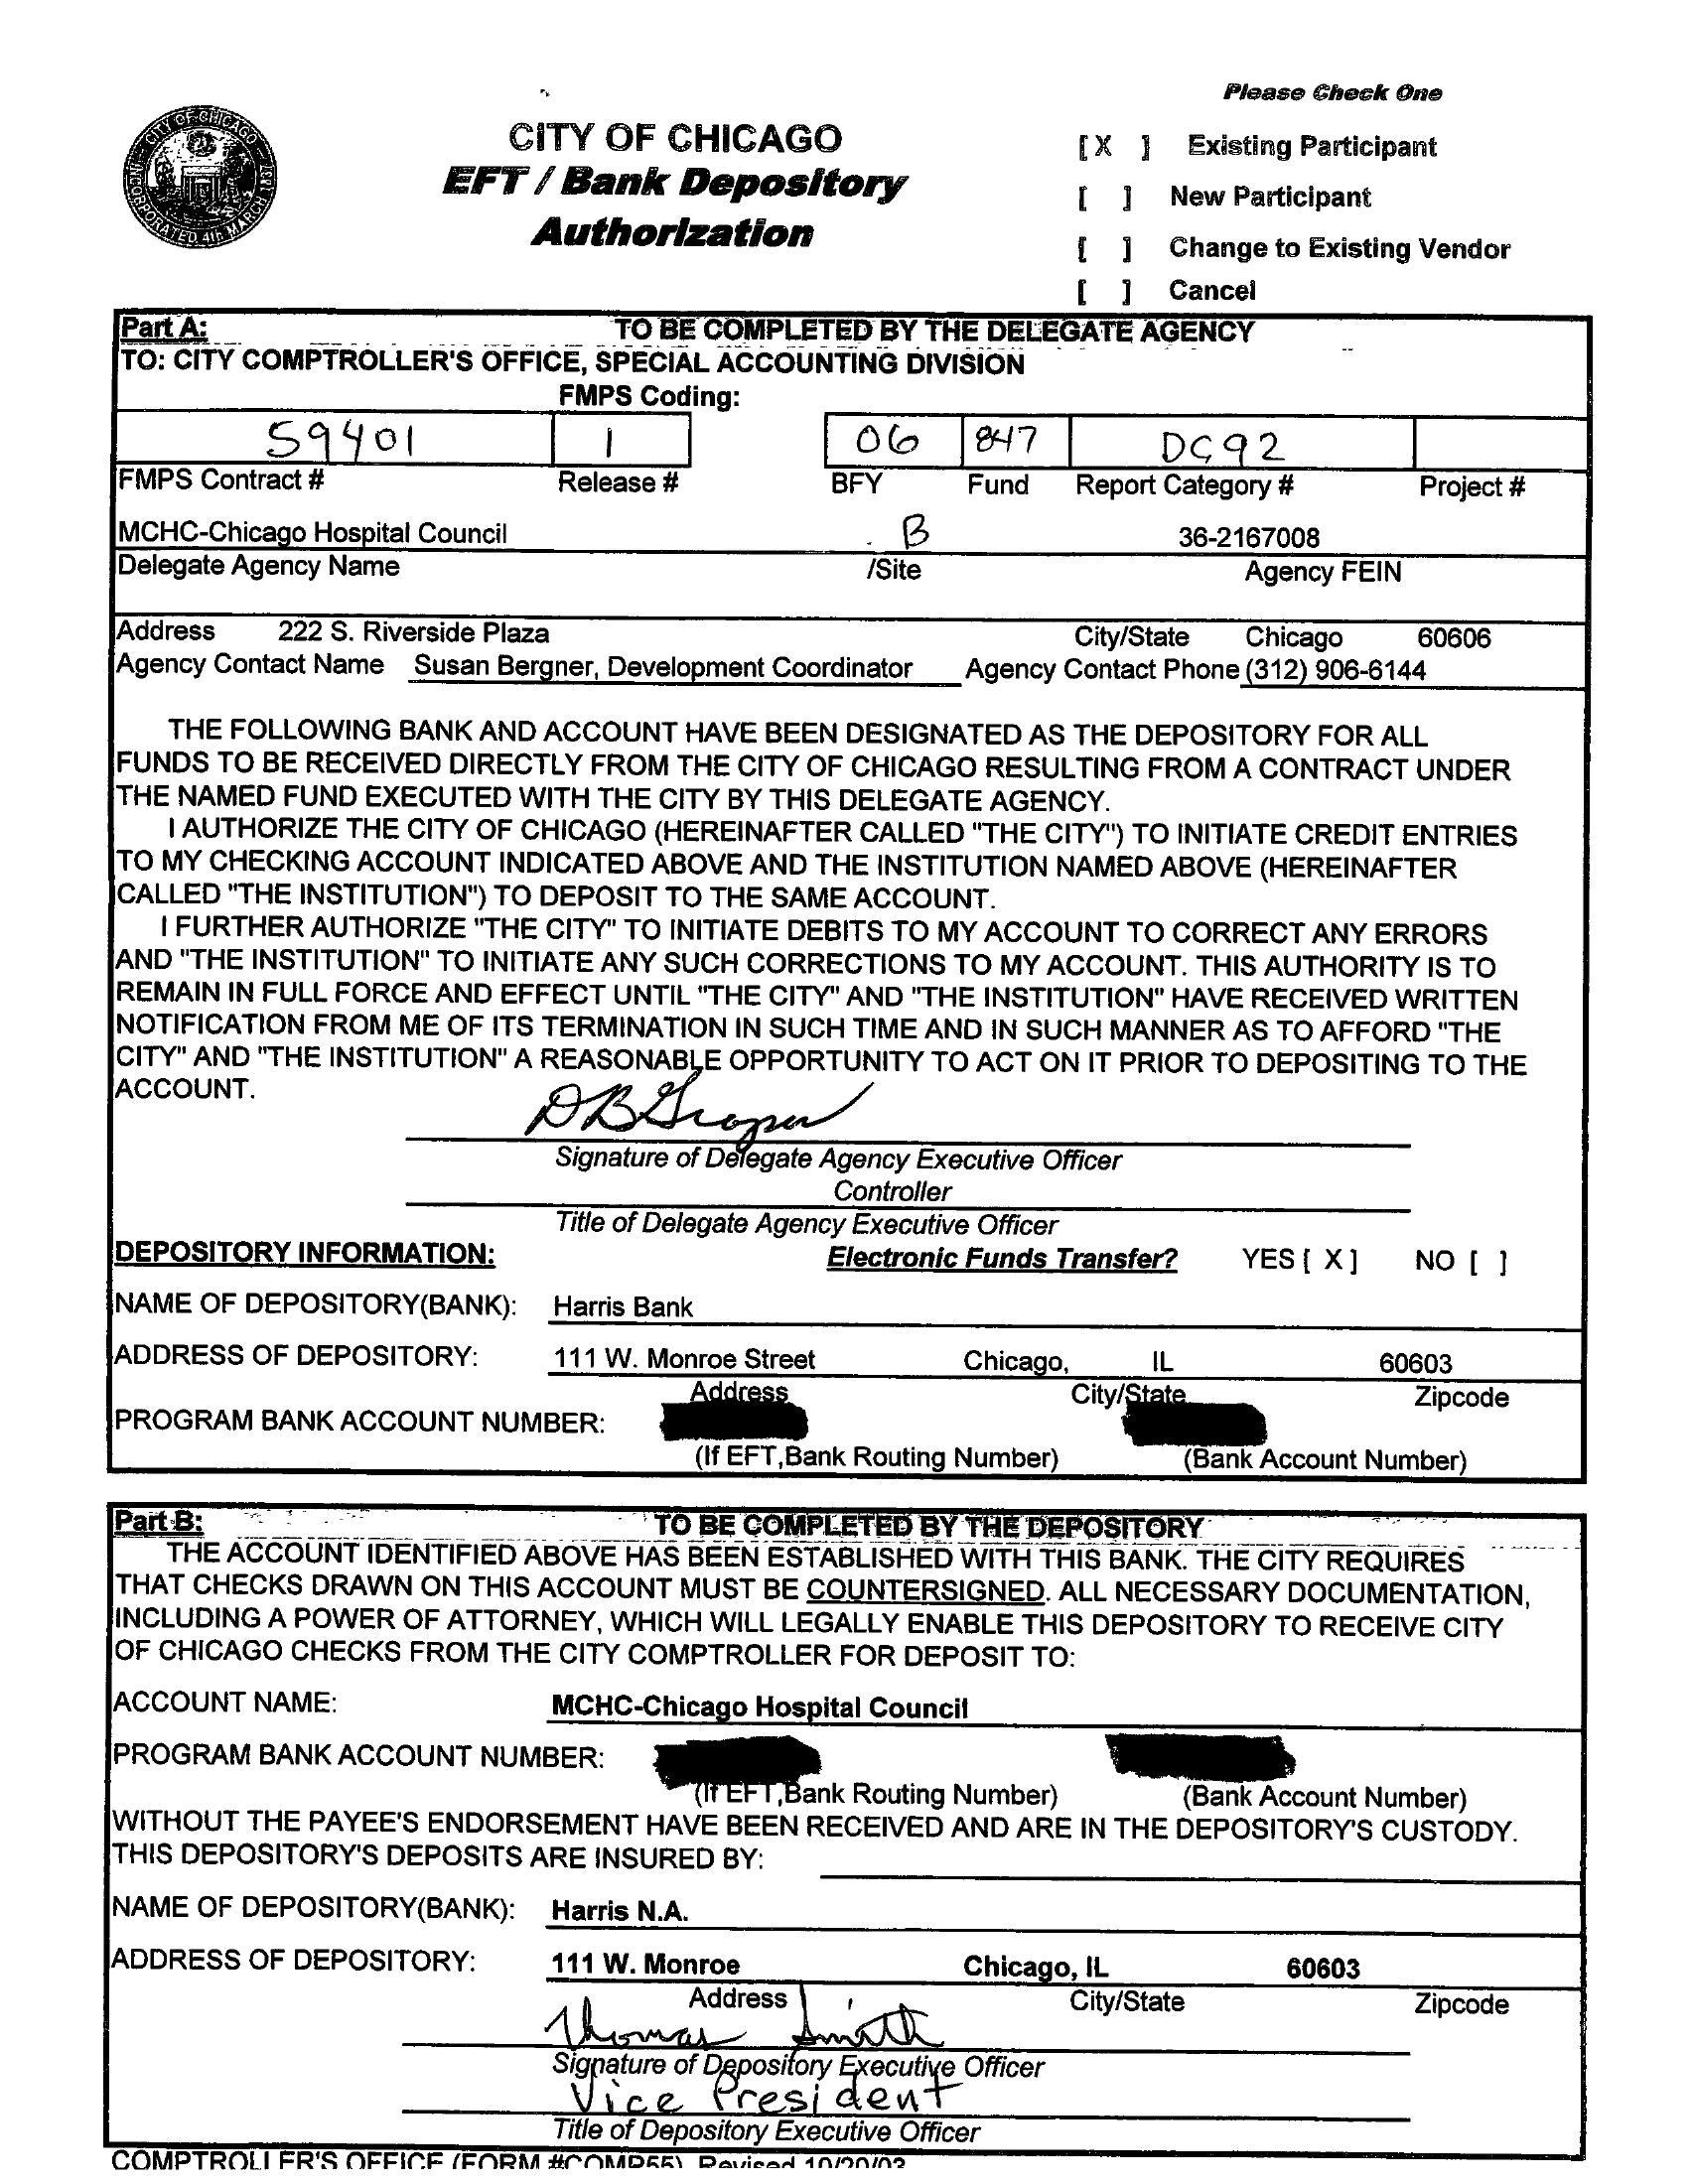 Please Check One
CITY OF CHICAGO
EFT / Bank Depository
Authorization
[X ] Existing Participant
[ ] New Participant
[ ] Change to Existing Vendor
[ ] Cancel
Part A: TO BE COMPLETED BY THE DELEGATE AGENCY
TO: CITY COMPTROLLER'S OFFICE, SPECIAL ACCOUNTING DIVISION
FMPS Coding:
59401 1 06 847 DC92
FMPS Contract # Release # BFY Fund Report Category # Project #
MCHC-Chicago Hospital Council B 36-2167008
Delegate Agency Name /Site Agency FEIN
Address 222 S. Riverside Plaza City/State Chicago 60606
Agency Contact Name Susan Bergner, Development Coordinator Agency Contact Phone (312) 906-6144
THE FOLLOWING BANK AND ACCOUNT HAVE BEEN DESIGNATED AS THE DEPOSITORY FOR ALL
FUNDS TO BE RECEIVED DIRECTLY FROM THE CITY OF CHICAGO RESULTING FROM A CONTRACT UNDER
THE NAMED FUND EXECUTED WITH THE CITY BY THIS DELEGATE AGENCY.
I AUTHORIZE THE CITY OF CHICAGO (HEREINAFTER CALLED "THE CITY") TO INITIATE CREDIT ENTRIES
TO MY CHECKING ACCOUNT INDICATED ABOVE AND THE INSTITUTION NAMED ABOVE (HEREINAFTER
CALLED "THE INSTITUTION") TO DEPOSIT TO THE SAME ACCOUNT.
I FURTHER AUTHORIZE "THE CITY" TO INITIATE DEBITS TO MY ACCOUNT TO CORRECT ANY ERRORS
AND "THE INSTITUTION" TO INITIATE ANY SUCH CORRECTIONS TO MY ACCOUNT. THIS AUTHORITY IS TO
REMAIN IN FULL FORCE AND EFFECT UNTIL "THE CITY" AND "THE INSTITUTION" HAVE RECEIVED WRITTEN
NOTIFICATION FROM ME OF ITS TERMINATION IN SUCH TIME AND IN SUCH MANNER AS TO AFFORD "THE
CITY" AND "THE INSTITUTION" A REASONABLE OPPORTUNITY TO ACT ON IT PRIOR TO DEPOSITING TO THE
ACCOUNT.
Signature of Delegate Agency Executive Officer
Controller
Title of Delegate Agency Executive Officer
DEPOSITORY INFORMATION: Electronic Funds Transfer? YES [ X ] NO [ ]
NAME OF DEPOSITORY(BANK): Harris Bank
ADDRESS OF DEPOSITORY: 111 W. Monroe Street Chicago, IL 60603
Address City/State Zipcode
PROGRAM BANK ACCOUNT NUMBER:
(If EFT,Bank Routing Number) (Bank Account Number)
Part B: TO BE COMPLETED BY THE DEPOSITORY
THE ACCOUNT IDENTIFIED ABOVE HAS BEEN ESTABLISHED WITH THIS BANK. THE CITY REQUIRES
THAT CHECKS DRAWN ON THIS ACCOUNT MUST BE COUNTERSIGNED. ALL NECESSARY DOCUMENTATION,
INCLUDING A POWER OF ATTORNEY, WHICH WILL LEGALLY ENABLE THIS DEPOSITORY TO RECEIVE CITY
OF CHICAGO CHECKS FROM THE CITY COMPTROLLER FOR DEPOSIT TO:
ACCOUNT NAME: MCHC-Chicago Hospital Council
PROGRAM BANK ACCOUNT NUMBER:
(If EFT,Bank Routing Number) (Bank Account Number)
WITHOUT THE PAYEE'S ENDORSEMENT HAVE BEEN RECEIVED AND ARE IN THE DEPOSITORY'S CUSTODY.
THIS DEPOSITORY'S DEPOSITS ARE INSURED BY:
NAME OF DEPOSITORY(BANK): Harris N.A.
ADDRESS OF DEPOSITORY: 111 W. Monroe Chicago, IL 60603
Address City/State Zipcode
Thomas Smith
Signature of Depository Executive Officer
Vice President
Title of Depository Executive Officer
COMPTROLLER'S OFFICE (FORM #COMP55) Revised 10/20/03